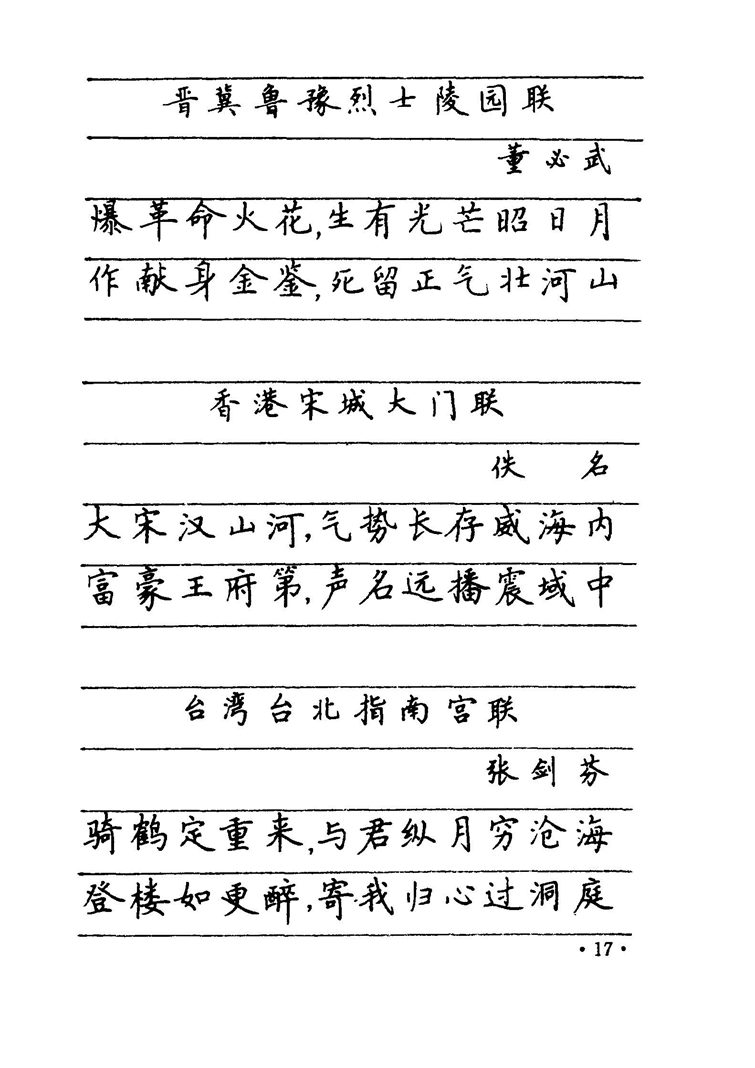 晋冀鲁豫烈士陵园联
董必武
爆革命火花,生有光芒昭日月
作献身金鉴,死留正气壮河山
香港宋城大门联
佚 名
大宋汉山河,气势长存威海内
富豪王府第,声名远播震域中
台湾台北指南宫联
张剑芬
骑鹤定重来,与君纵月穷沧海
登楼如更醉,寄我归心过洞庭
·17·